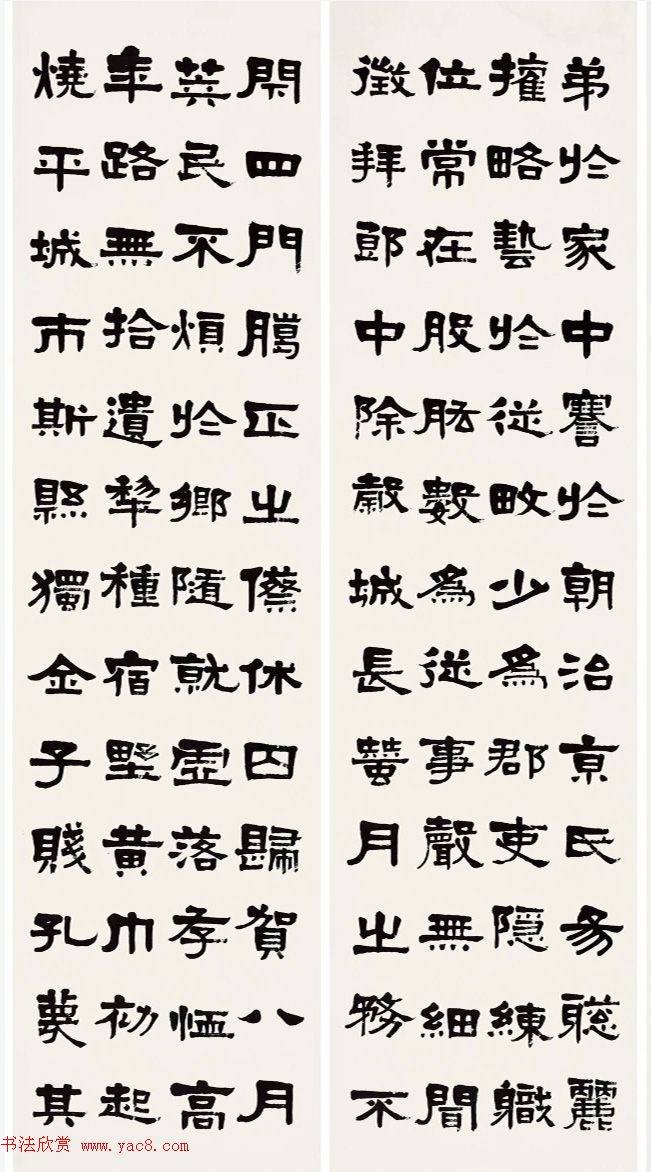 弟於家中謇於朝治京氏易聰麗
權略藝於從畋少為郡吏隱練職
位常在股肱數為從事聲無細聞
徵拜郎中除穀城長蠶月之務不
閉四門臘正之傺休囚歸賀八月
筭民不煩於鄉隨就虛落存恤高
年路無拾遺犁種宿野黃巾初起
燒平城市斯縣獨全子賤孔蔑其
书法欣赏 www.yac8.com